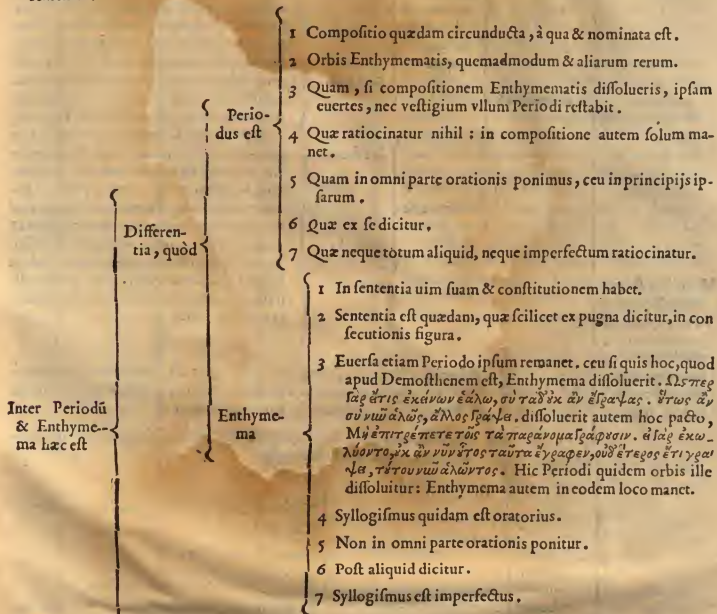 1 Compositio quædam circunducta, à qua & nominata est.
2 Orbis Enthymematis, quemadmodum & aliarum rerum.
3 Quam, si compositionem Enthymematis dissolueris, ipsam
euertes, nec vestigium vllum Periodi restabit.
Perio-
dus est
4 Quæ ratiocinatur nihil : in compositione autem solum ma-
net.
5 Quam in omni parte orationis ponimus, ceu in principijs ip-
sarum.
Differen-
tia, quòd
6 Quæ ex se dicitur.
7 Quæ neque totum aliquid, neque imperfectum ratiocinatur.
1 In sententia uim suam & constitutionem habet.
2 Sententia est quædam, quæ scilicet ex pugna dicitur, in con
secutionis figura.
3 Euersa etiam Periodo ipsum remanet. ceu si quis hoc, quod
apud Demosthenem est, Enthymema dissoluerit. Ωσπερ
γὰρ ἔτις ἐκάνων ἑάλω, σὺ ταδ' ἐκ ἂν ἔγραψας. ἕτως ἂν
σὺ νιῶ ἁλῶς, ἄλλος γράψει. dissoluerit autem hoc pacto,
Μὴ ἐπιτρέπετε τοῖς τὰ παράνομα γράφουσιν. εἰ γὰρ ἐκω-
λύοντο, ἐκ ἂν νῦν ἕτος ταῦτα ἔγραφεν, οὐδ' ἕτερος ἔτι γρά-
ψει, τύτου νιῶ ἁλῶντος. Hic Periodi quidem orbis ille
dissoluitur: Enthymema autem in eodem loco manet.
Inter Periodū
& Enthyme-
ma hæc est
Enthyme-
ma
4 Syllogismus quidam est oratorius.
5 Non in omni parte orationis ponitur.
6 Post aliquid dicitur.
7 Syllogismus est imperfectus.